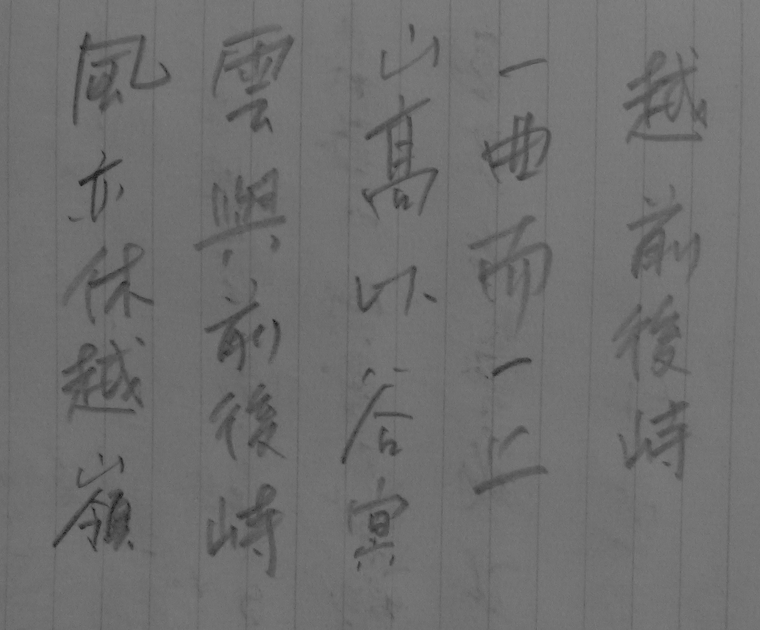 越前後峙
一曲而一上
山高以谷冥
雲與前後峙
風亦休越嶺